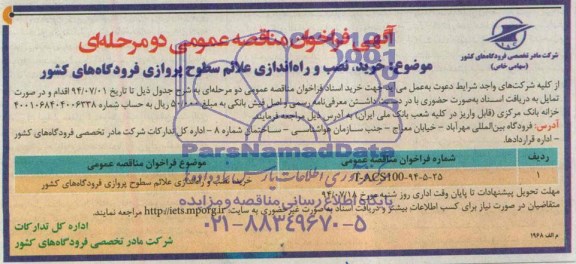 آگهی فراخوان مناقصه عمومی دو مرحله‌ای
موضوع: خرید، نصب و راه‌اندازی علائم سطوح پروازی فرودگاه‌های کشور
شرکت مادر تخصصی فرودگاه‌های کشور
(سهامی خاص)
از کلیه شرکت‌های واجد شرایط دعوت به‌عمل می‌آید جهت خرید اسناد فراخوان مناقصه عمومی دو مرحله‌ای به شرح جدول ذیل تا تاریخ ۹۴/۰۷/۰۱ اقدام و در صورت
تمایل به دریافت اسناد به‌صورت حضوری با در دست داشتن معرفی‌نامه رسمی و اصل فیش بانکی به مبلغ ۵۰۰/۰۰۰ ریال به حساب شماره ۴۰۰۱۰۶۸۴۰۴۰۰۶۳۳۸
خزانه بانک مرکزی (قابل واریز در کلیه شعب بانک ملی ایران) به آدرس ذیل مراجعه فرمایند.
آدرس: فرودگاه بین‌المللی مهرآباد - خیابان معراج - جنب سازمان هواشناسی - ساختمان شماره ۸ - اداره کل تدارکات شرکت مادر تخصصی فرودگاه‌های کشور
- اداره قراردادها.
ردیف شماره فراخوان مناقصه عمومی موضوع فراخوان مناقصه عمومی
۱ T-ACS100-۹۴-۵-۲۵ خرید، نصب و راه‌اندازی علائم سطوح پروازی فرودگاه‌های کشور
مهلت تحویل پیشنهادات تا پایان وقت اداری روز شنبه مورخ ۹۴/۰۷/۱۸
متقاضیان در صورت نیاز برای کسب اطلاعات بیشتر و دریافت اسناد به‌صورت غیرحضوری به سایت: http://iets.mporg.ir مراجعه نمایند.
اداره کل تدارکات
شرکت مادر تخصصی فرودگاه‌های کشور
م الف ۱۹۶۸
ParsNamadData
پایگاه اطلاع رسانی مناقصه و مزایده
۰۲۱-۸۸۳۴۹۶۷۰-۵